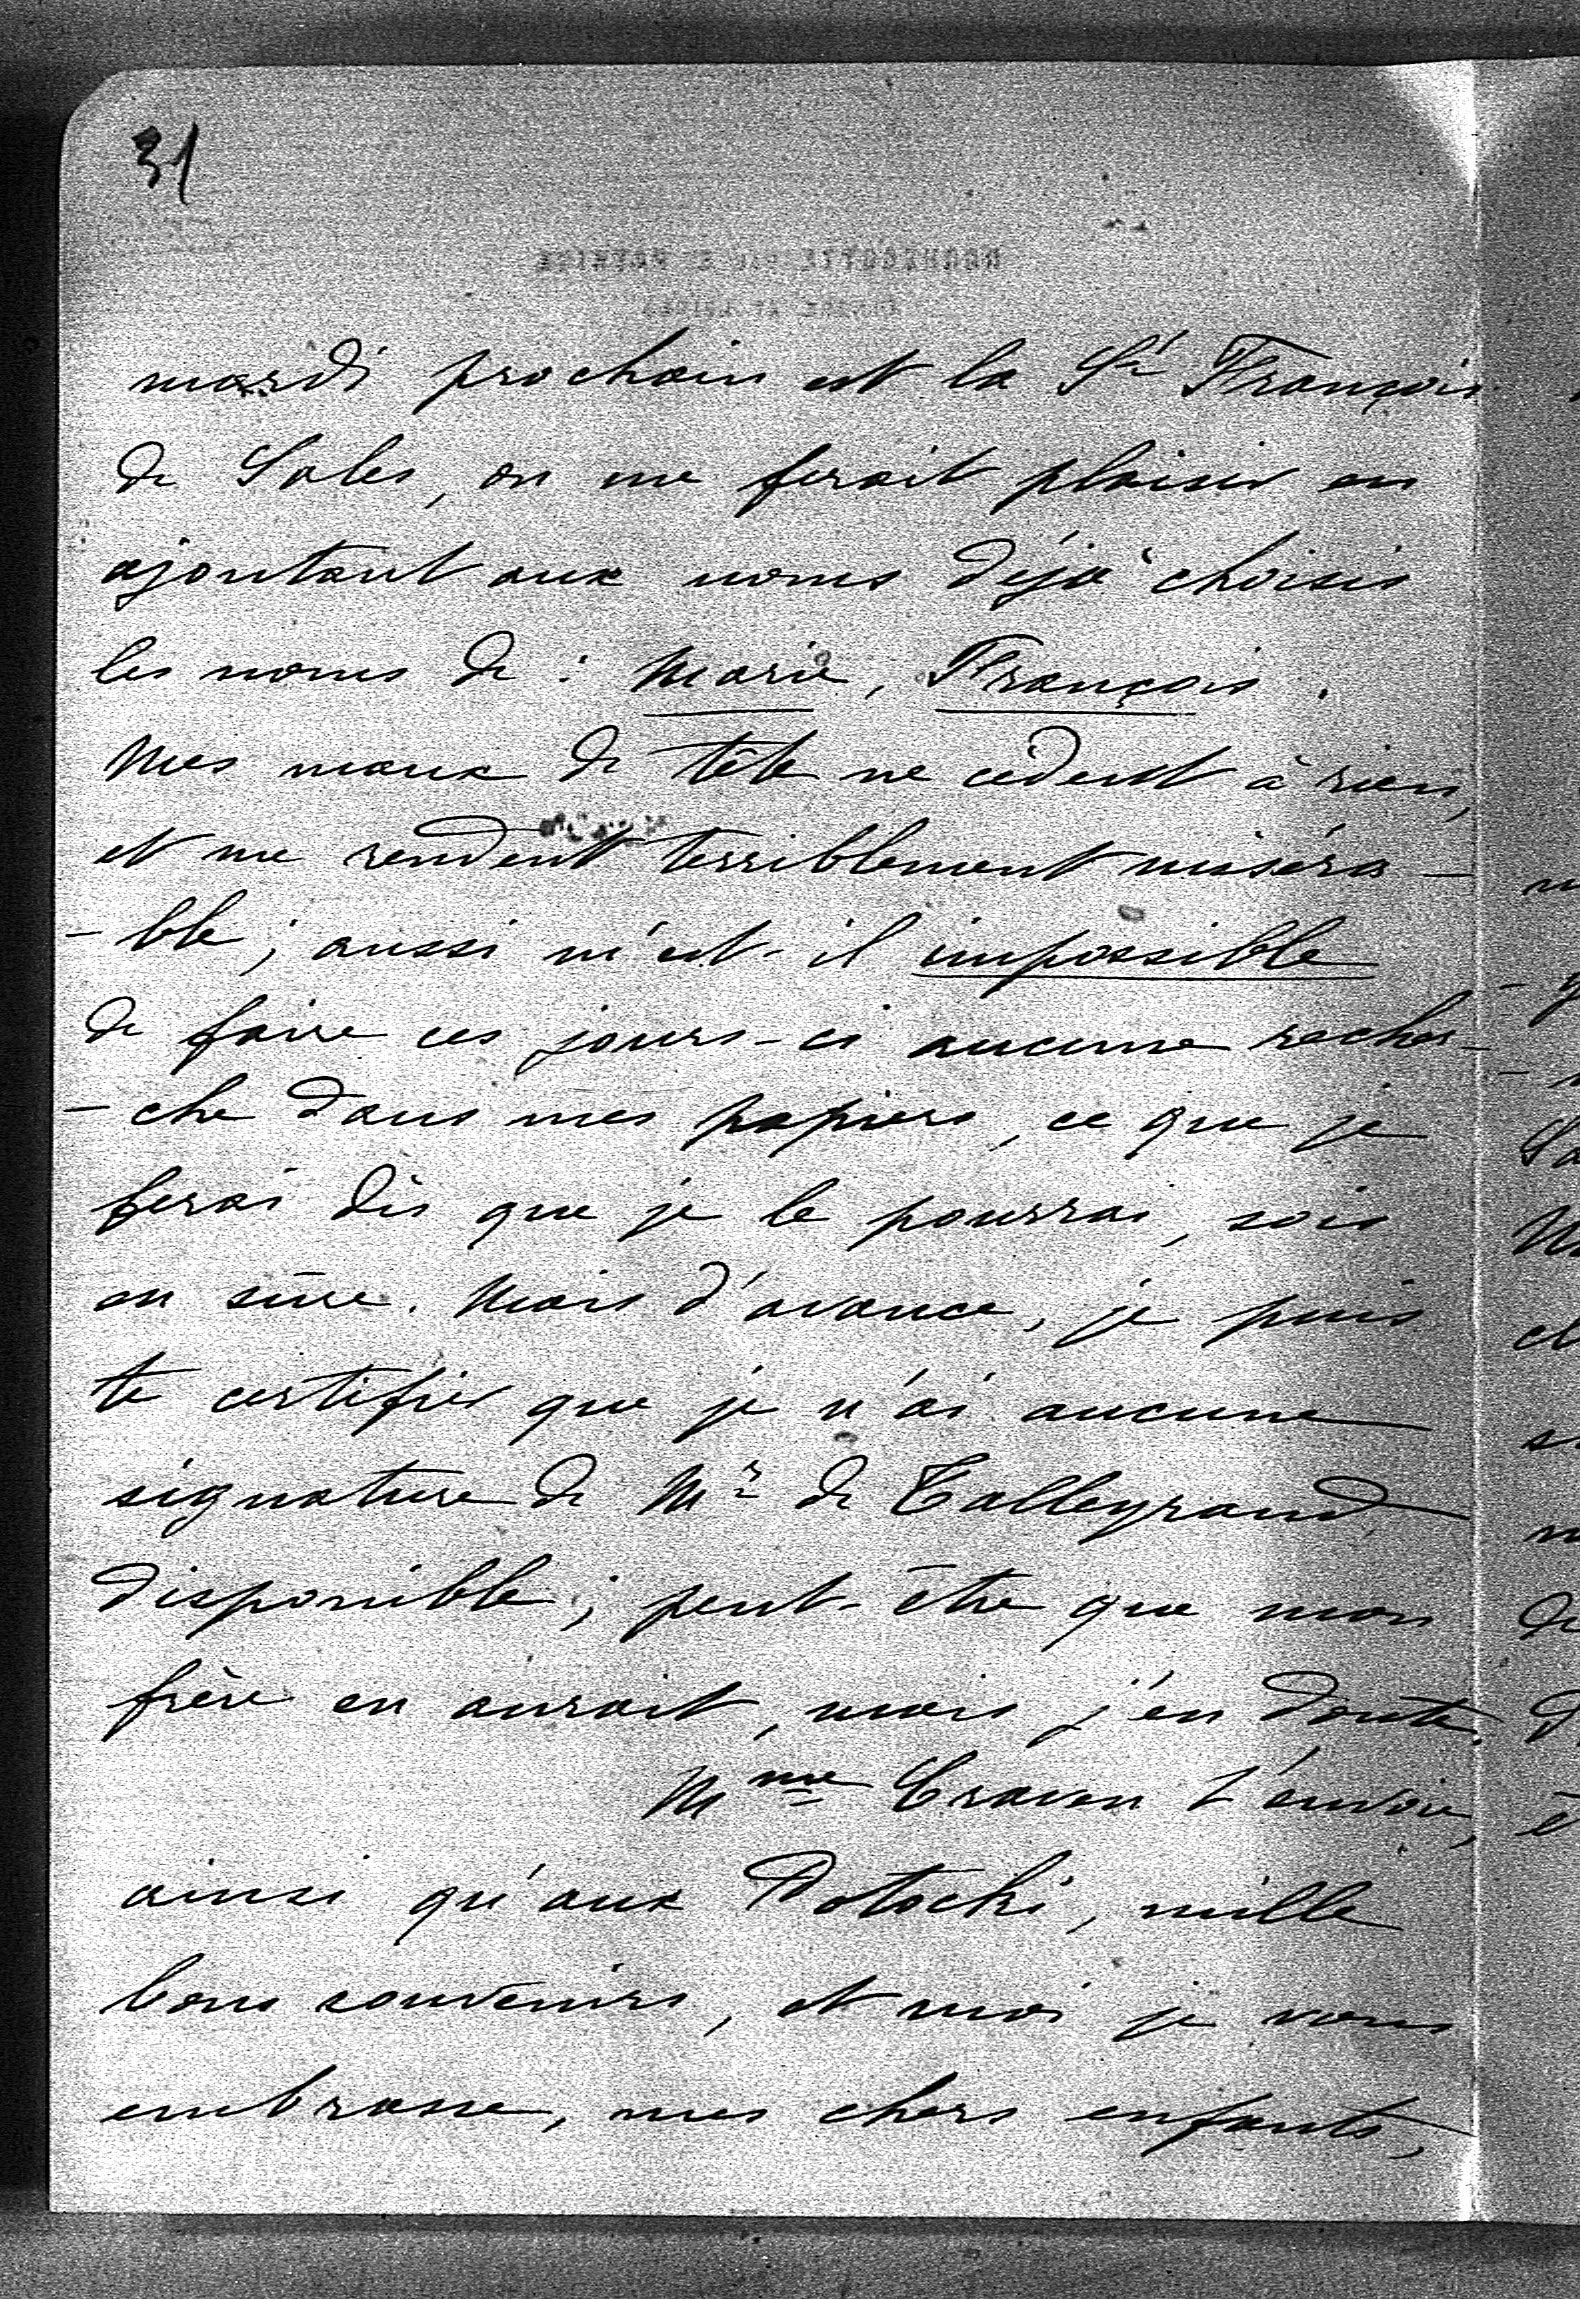 31
mardi prochain est la St François
de Sales, on me ferait plaisir en
ajoutant aux noms déjà choisis
les noms de : Marie, François.
Mes maux de tête ne cèdent à rien,
et me rendent terriblement miséra-
-ble ; aussi m'est-il impossible
de faire ces jours-ci aucune recher-
-che dans mes papiers, ce que je
ferai dès que je le pourrai, sois
en sûre. Mais d'avance, je puis
te certifier que je n'ai aucune
signature de Mr de Talleyrand
disponible ; peut-être que mon
frère en aurait, mais j'en doute.
Mme Craven t'envoie,
ainsi qu'aux Potocki, mille
bons souvenirs, et moi je vous
embrasse, mes chers enfants,